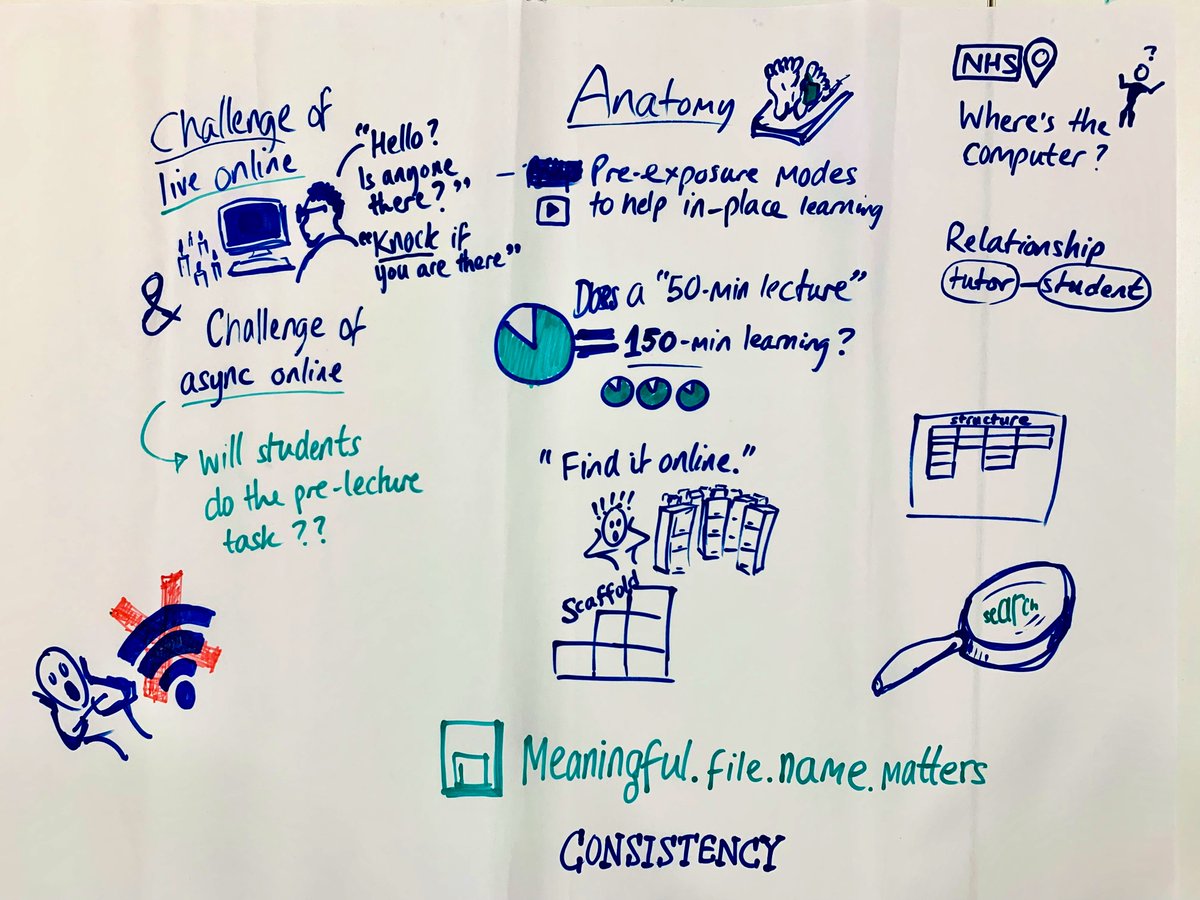 Challenge of
live online
"Hello?
Is anyone
there?"
"Knock if
you are there"
&
Challenge of
async online
Will students
do the pre-lecture
task??
Anatomy
- Pre-exposure modes
to help in-place learning
Does a "50-min lecture"
= 150-min learning?
"Find it online."
!!!!
Scaffold
Meaningful.file.name.matters
CONSISTENCY
NHS
?
Where's the
computer?
Relationship
tutor-student
structure
search